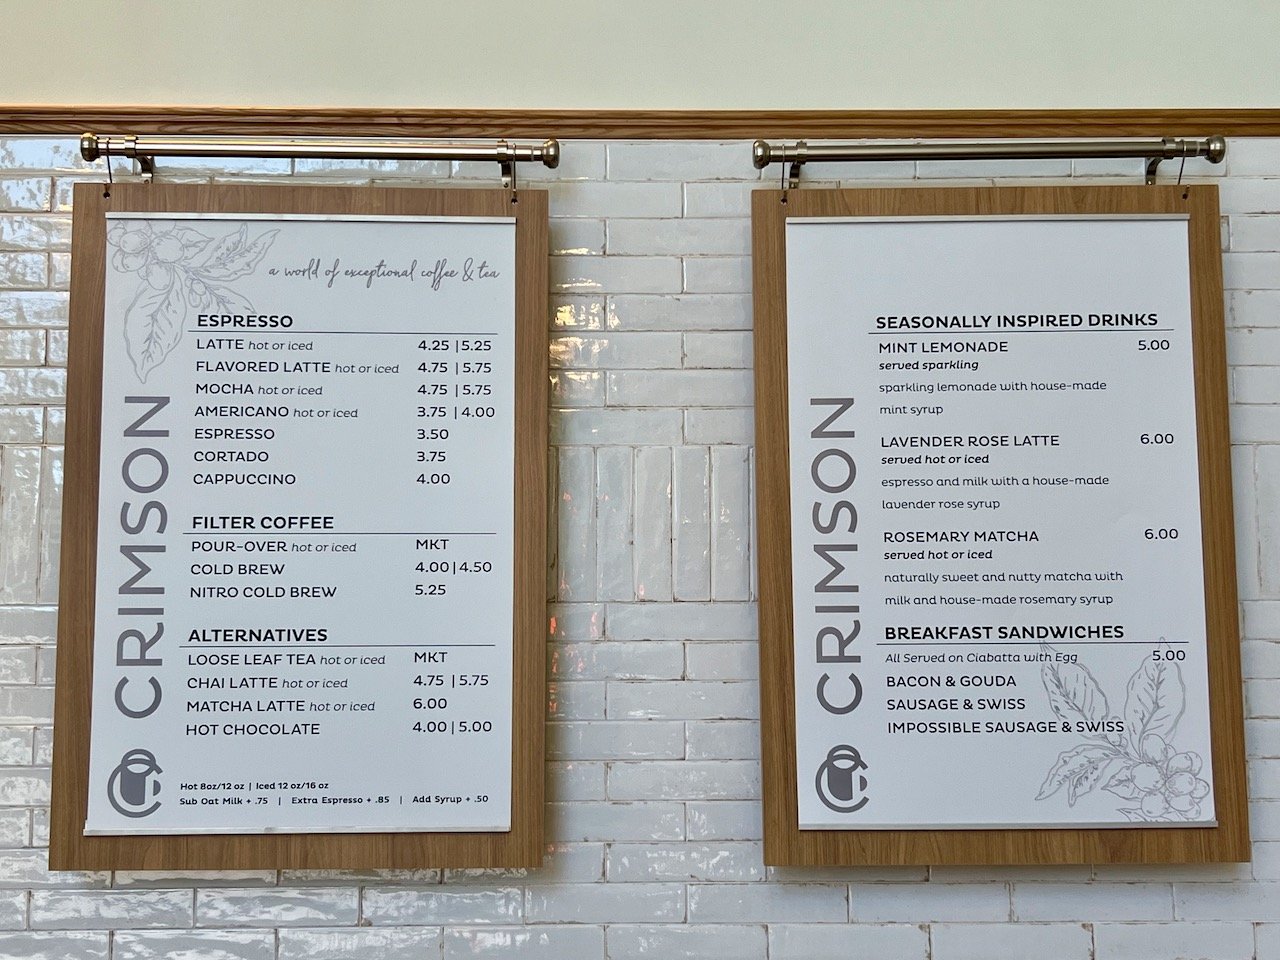 a world of exceptional coffee & tea
CRIMSON
ESPRESSO
LATTE hot or iced 4.25 | 5.25
FLAVORED LATTE hot or iced 4.75 | 5.75
MOCHA hot or iced 4.75 | 5.75
AMERICANO hot or iced 3.75 | 4.00
ESPRESSO 3.50
CORTADO 3.75
CAPPUCCINO 4.00
FILTER COFFEE
POUR-OVER hot or iced MKT
COLD BREW 4.00 | 4.50
NITRO COLD BREW 5.25
ALTERNATIVES
LOOSE LEAF TEA hot or iced MKT
CHAI LATTE hot or iced 4.75 | 5.75
MATCHA LATTE hot or iced 6.00
HOT CHOCOLATE 4.00 | 5.00
Hot 8oz/12 oz | Iced 12 oz/16 oz
Sub Oat Milk + .75 | Extra Espresso + .85 | Add Syrup + .50
CRIMSON
SEASONALLY INSPIRED DRINKS
MINT LEMONADE 5.00
served sparkling
sparkling lemonade with house-made
mint syrup
LAVENDER ROSE LATTE 6.00
served hot or iced
espresso and milk with a house-made
lavender rose syrup
ROSEMARY MATCHA 6.00
served hot or iced
naturally sweet and nutty matcha with
milk and house-made rosemary syrup
BREAKFAST SANDWICHES
All Served on Ciabatta with Egg 5.00
BACON & GOUDA
SAUSAGE & SWISS
IMPOSSIBLE SAUSAGE & SWISS